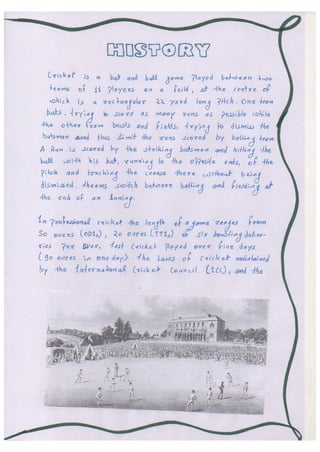 HISTORY
Cricket is a bat and ball game played between two
teams of 11 players on a feild, at the centre of
which is a rectangular 22 yard long pitch. One team
bats, trying to score as many runs as possible while
the other team bowls and fields, trying to dismiss the
batsman and thus limit the runs scored by batting team
A run is scored by the striking batsman and hitting the
ball with his bat, running to the opposite ends, of the
pitch and touching the crease there without being
dismissed. Theams switch between batting and fielding at
the end of an inning.
In professional cricket the length of a game ranges from
50 overs (ODIs), 20 overs (TTIs) of six bowling deliver-
ries per over, test cricket played over five days
(90 overs in one day). The laws of cricket maintained
by the International Cricket Council (ICC), and the